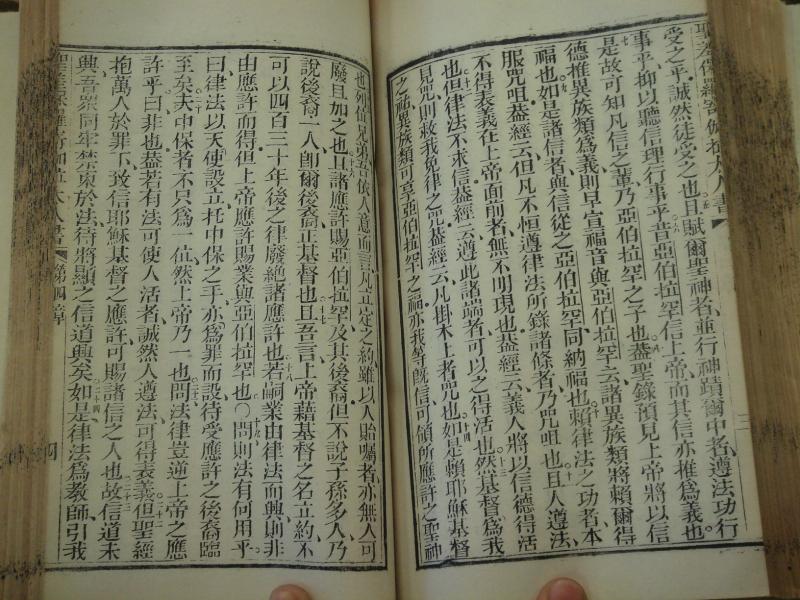 受之乎誠然徒受之也且賦爾聖神者並行神蹟爾中者遵法功行
事乎抑以聽信理行事乎昔亞伯拉罕信上帝而其信亦推爲義也
是故可知凡信之輩乃亞伯拉罕之子也葢聖錄預見上帝將以信
德推異族類爲義則早宣福音與亞伯拉罕云諸異族類將賴爾得
福也如是諸信者與信從之亞伯拉罕同納福也賴律法之功者本
服咒咀葢經云但凡不恒遵律法所錄諸條者乃咒咀也且人遵法
不得表義在上帝面前者無不明現也葢經云義人將以信德得活
也但律法不求信葢經云遵此諸端者可以之得活也然基督爲我
見咒則救我免律之咒葢經云凡掛木上者咒也如是賴耶穌基督
之祐異族類可享亞伯拉罕之福亦我等旣信可領所應許之聖神
也列位兄弟吾依人意而言凡立定之約雖以人貽囑者亦無人可
廢且加之也且諸應許賜亞伯拉罕及其後裔但不說子孫多人乃
說後裔一人卽爾後裔正基督也且吾言上帝藉基督之名立約不
可以四百三十年後之律廢絶諸應許也若嗣業由律法而興則非
由應許而得但上帝應許賜業與亞伯拉罕也〇問則法有何用乎
曰律法以天使設立托中保之手亦爲罪而設待受應許之後裔臨
至矣夫中保者不只爲一位然上帝乃一也問法律豈逆上帝之應
許乎曰非也葢若有法可使人活者誠然人遵法可得表義但聖經
抱萬人於罪下致信耶穌基督之應許可賜諸信之人也故信道未
興吾眾同牢禁束於法待將顯之信道興矣如是律法爲教師引我
第四章
四